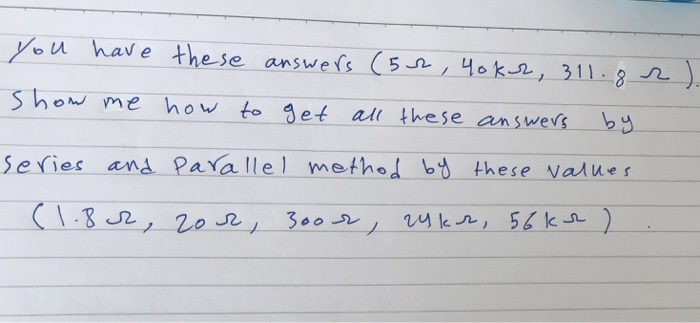 You have these answers (5Ω, 40kΩ, 311.8 Ω).
Show me how to get all these answers by
series and parallel method by these values
(1.8Ω, 20Ω, 300Ω, 24kΩ, 56kΩ).